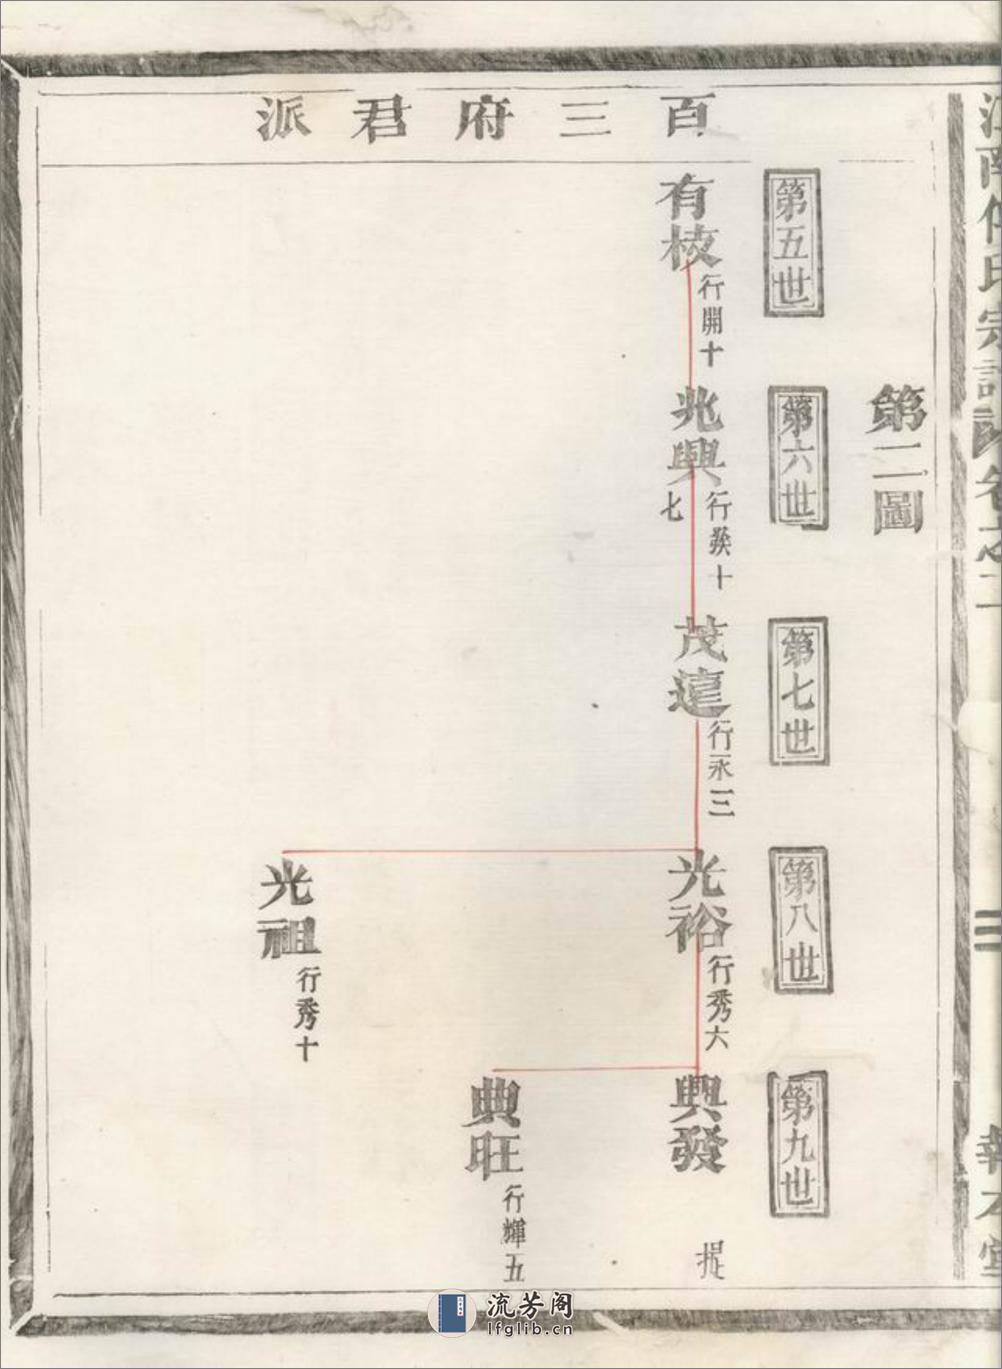 百三府君派
第二圖
第五世
第六世
第七世
第八世
第九世
有棱
行開十
兆興
行發十七
茂遠
行永三
光裕
行秀六
光祖
行秀十
興發
典旺
行輝五
宗譜
卷之二
二
報本堂
流芳阁
lfglib.cn